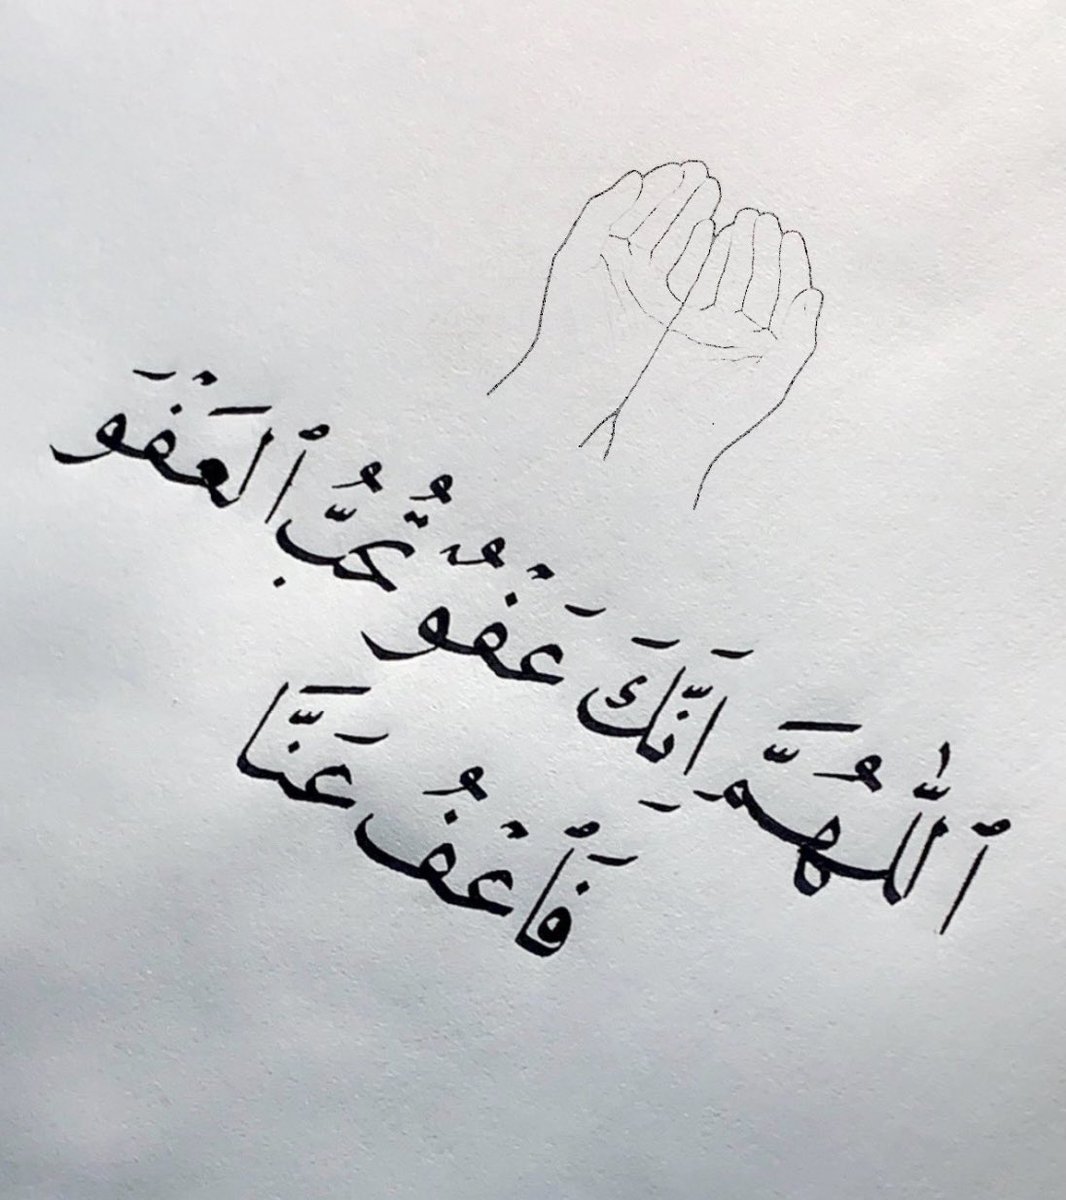 ٱللّٰهُمَّ اِنَّكَ عَفْوٌ تُحِبُّ ٱلعَفْوَ
فَٱعْفُ عَنَّا